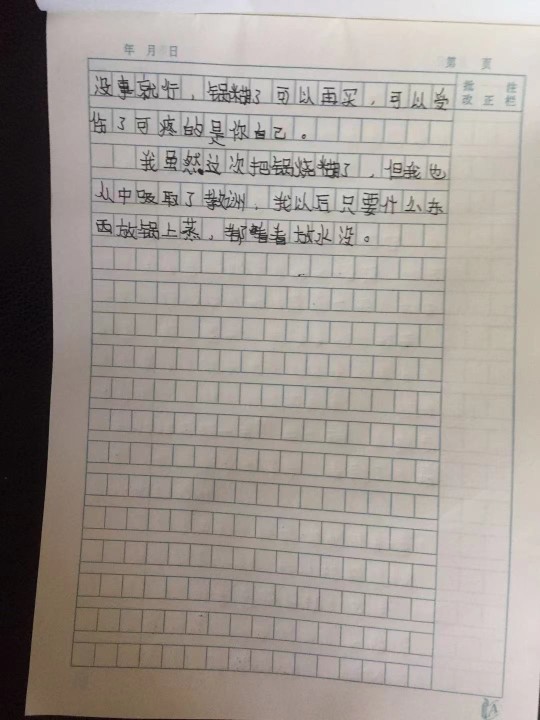 年 月 日
第 页
批 注
改 正 栏
没事就行，锅糊了可以再买，可以受
伤了可疼的是你自己。
我虽然这次把锅烧糊了，但我也
从中吸取了教训，我以后只要什么东
西放锅上蒸，都看看放水没。